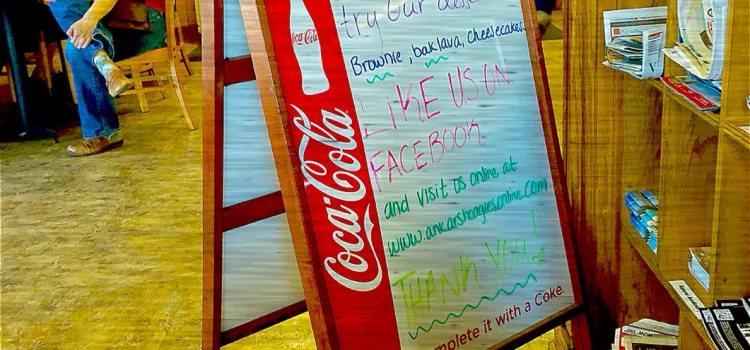 Coca-Cola
try our
Brownie, baklava, cheesecakes
LIKE US ON
FACEBOOK
and visit us online at
www.ankarshoagiesonline.com
THANK YOU!
complete it with a Coke.
Coca-Cola